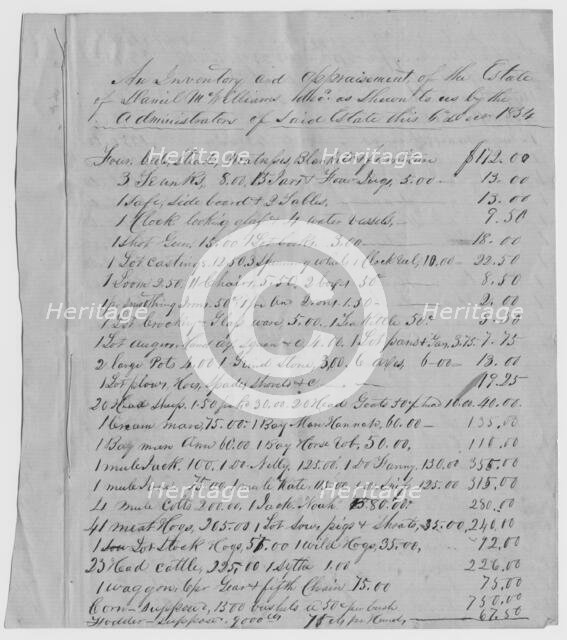 An Inventory and appraisement of the Estate
of Daniel McWilliams as Shewn to us by the
Administrators of Said Estate this 6 1834
Four $112.00
3 Trunks, 8.00, 13 Jars & Four Jugs, 5.00 — 13.00
1 Safe, Side board & 2 Tables, — 13.00
1 Clock looking glass & 4 water vessels, — 9.50
1 Shot Gun, 15.00 1 Lot books 3.00 — 18.00
1 Lot Castings 12.50, 3 Spinning wheels 1 Clock Reel, 10.00 — 22.50
1 Loom 2.50, 11 Chairs, 5.50, 2 50 8.50
1 pr Smoothing Irons 50 1 pr 1.50 — 2.00
1 Lot Crockery & Glass ware 5.00. 1 Tea Kettle 50
1 Lot augers 4.00. 1 Lot pans & 3.75. 7.75
2 large Pots 4.00 1 Grind Stone, 3.00, 6 axes, 6.00 — 13.00
1 Lot plows, Hoes, Spades, Shovels &c — 19.25
20 Head Sheep 1.50 30.00. 20 Head Goats 50 10.00. 40.00
1 Cream mare, 75.00. 1 Bay Mare Hannah, 60.00 — 135.00
1 Bay mare Ann 60.00 1 Bay Horse Bob, 50.00, 110.00
1 mule Jack, 100, 1 Do Nelly, 125.00 1 Do Fanny, 130.00 355.00
1 mule 75.00 1 mule Kate 115.00 1 Do 125.00 315.00
4 mule Colts 200.00, 1 Jack Noah 80.00. 280.00
41 meat Hogs, 205.00 1 Lot Sows, pigs & Shoats, 35.00, 240.00
1 Lot Stock Hogs, 1 wild Hogs, 35.00, 92.00
23 Head cattle, 225.00 1 Sythe 1.00 226.00
1 waggon, Gear & fifth Chain 75.00 75.00
Corn — Suppose, 1500 bushels a 50 c per bush 750.00
Fodder — Suppose, 9000 lbs 75 cts per Hund, — 67.50
Heritage Images
Heritage Images
Heritage Images
Heritage Images
Heritage Images
Heritage Images